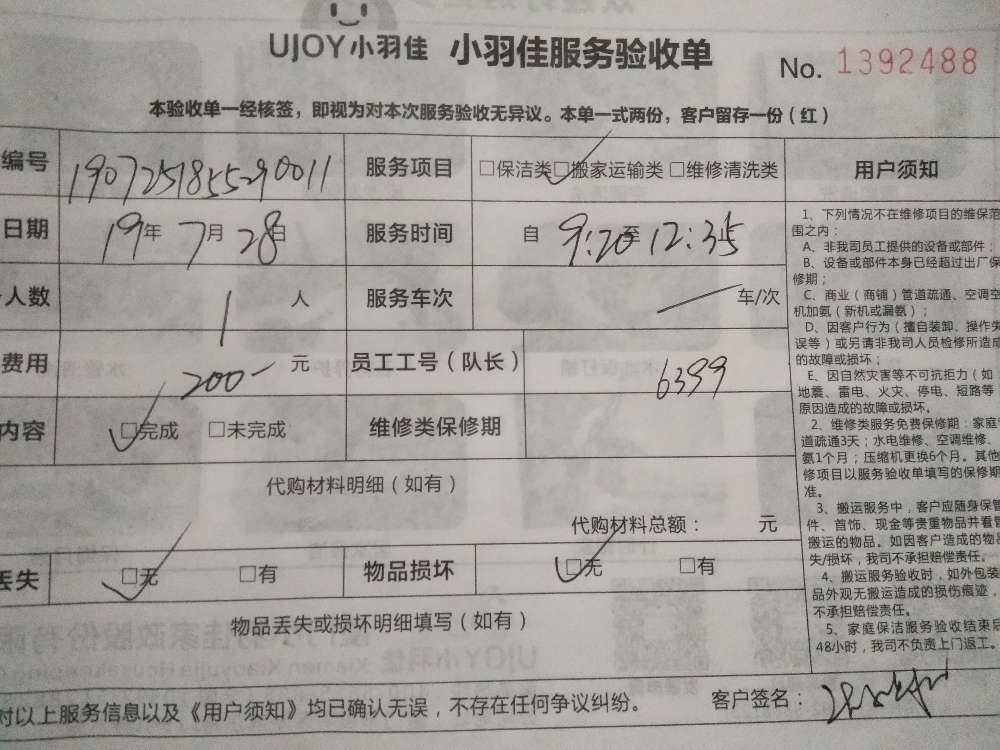 UJOY小羽佳 小羽佳服务验收单 No. 1392488
本验收单一经核签，即视为对本次服务验收无异议。本单一式两份，客户留存一份（红）
编号 1907251855290011 服务项目 □保洁类 □搬家运输类 □维修清洗类
日期 19年 7月 28日 服务时间 自 9:20至 12:35
人数 1 人 服务车次 车/次
费用 200 元 员工工号（队长） 6399
内容 □完成 □未完成 维修类保修期
代购材料明细（如有）
代购材料总额： 元
丢失 □无 □有 物品损坏 □无 □有
物品丢失或损坏明细填写（如有）
对以上服务信息以及《用户须知》均已确认无误，不存在任何争议纠纷。 客户签名：
用户须知
1、下列情况不在维修项目的维保范
围之内：
A、非我司员工提供的设备或部件；
B、设备或部件本身已经超过出厂保
修期；
C、商业（商铺）管道疏通、空调空
机加氨（新机或漏氨）；
D、因客户行为（擅自装卸、操作失
误等）或另请非我司人员检修所造成
的故障或损坏；
E、因自然灾害等不可抗拒力（如
地震、雷电、火灾、停电、短路等
原因造成的故障或损坏。
2、维修类服务免费保修期：家庭
道疏通3天；水电维修、空调维修、
氨1个月；压缩机更换6个月。其他
修项目以服务验收单填写的保修期
准。
3、搬运服务中，客户应随身保管
件、首饰、现金等贵重物品并看管
搬运的物品。如因客户造成的物品
失/损坏，我司不承担赔偿责任。
4、搬运服务验收时，如外包装
品外观无搬运造成的损伤痕迹，
不承担赔偿责任。
5、家庭保洁服务验收结束后
48小时，我司不负责上门返工。